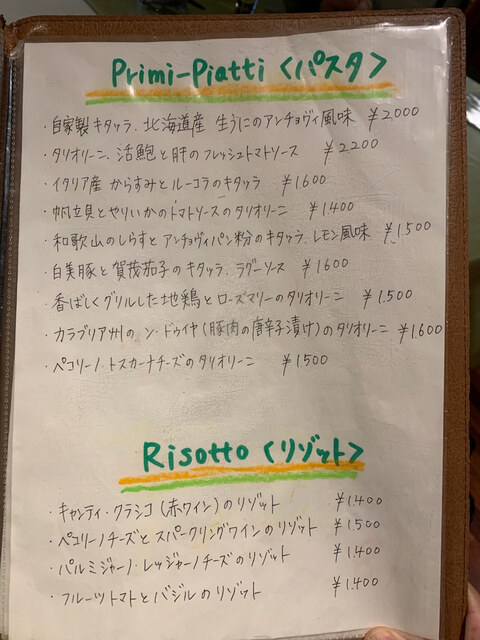 Primi-Piatti〈パスタ〉
・自家製キタッラ、北海道産 生うにのアンチョヴィ風味 ¥2,000
・タリオリーニ、活鮑と肝のフレッシュトマトソース ¥2200
・イタリア産 からすみとルーコラのキタッラ ¥1600
・帆立貝とやりいかのトマトソースのタリオリーニ ¥1400
・和歌山のしらすとアンチョヴィパン粉のキタッラ、レモン風味 ¥1.500
・白美豚と賀茂茄子のキタッラ、ラグーソース ¥1600
・香ばしくグリルした地鶏とローズマリーのタリオリーニ ¥1.500
・カラブリア州のン・ドゥイヤ(豚肉の唐辛子漬け)のタリオリーニ ¥1.600
・ペコリーノ・トスカーナチーズのタリオリーニ ¥1.500
Risotto〈リゾット〉
・キャンティ・クラシコ(赤ワイン)のリゾット ¥1.400
・ペコリーノチーズとスパークリングワインのリゾット ¥1.500
・パルミジャーノ・レッジャーノチーズのリゾット ¥1.400
・フルーツトマトとバジルのリゾット ¥1.400